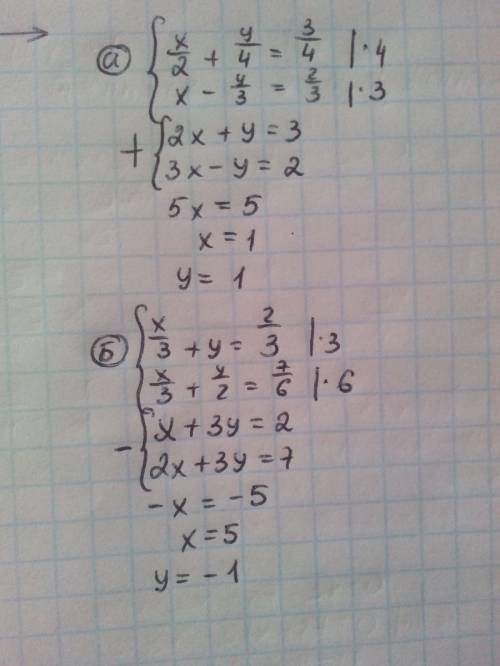 а) x/2 + y/4 = 3/4 |·4
x - y/3 = 2/3 |·3
+ 2x + y = 3
3x - y = 2
5x = 5
x = 1
y = 1
б) x/3 + y = 2/3 |·3
x/3 + y/2 = 7/6 |·6
- x + 3y = 2
2x + 3y = 7
-x = -5
x = 5
y = -1